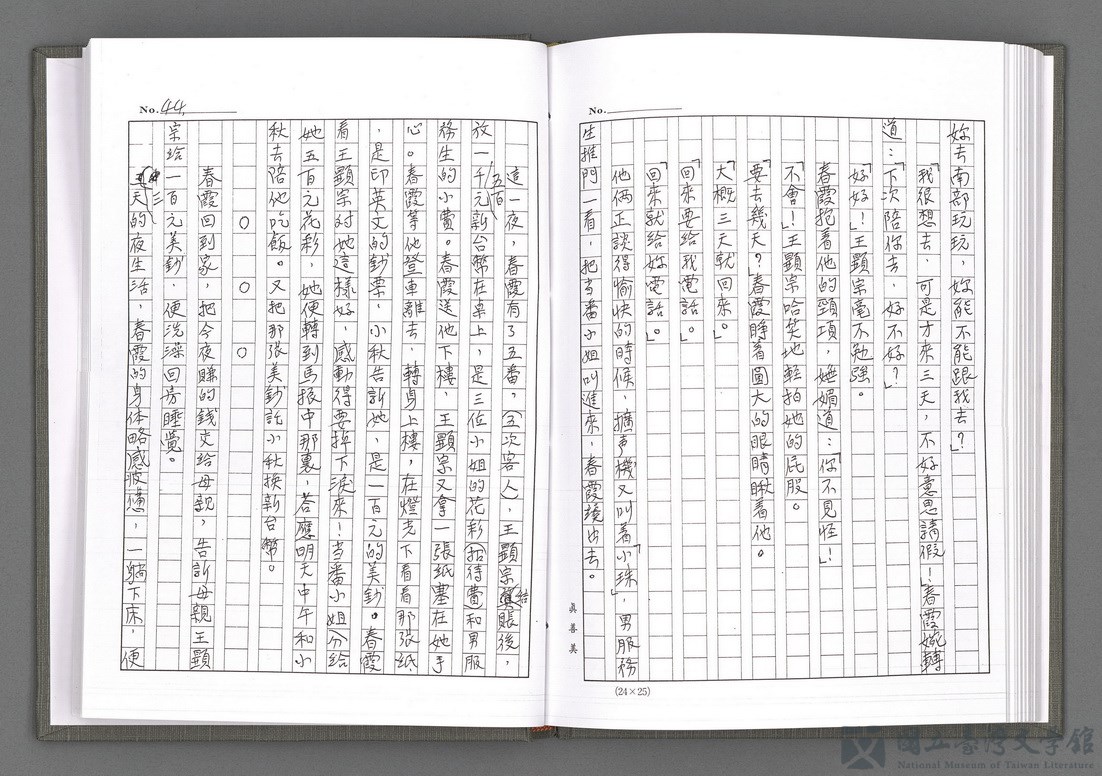 No.
妳去南部玩玩，妳能不能跟我去？」
「我很想去，可是才來三天，不好意思請假！」春霞婉轉
道：「下次陪你去，好不好？」
「好好！」王顯宗毫不勉強。
春霞抱着他的頸項，嫵媚道：「你不見怪！」
「不會！」王顯宗哈笑地輕拍她的屁股。
「要去幾天？」春霞睜着圓大的眼睛瞅着他。
「大概三天就回來。」
「回來要給我電話。」
「回來就給妳電話。」
他倆正談得愉快的時候，擴声機又叫着「小珠」，男服務
生推門一看，把当番小姐叫進來，春霞轉出去。
眞善美
(24×25)
No. 44.
這一夜，春霞有了五番，（五次客人），王顯宗結賬後，
放一千五百元新台幣在桌上，是三位小姐的花彩招待費和男服
務生的小費。春霞送他下樓，王顯宗又拿一張紙塞在她手
心。春霞等他登車離去，轉身上樓，在燈光下看看那張紙
，是印英文的鈔票，小秋告訴她，是一百元的美鈔。春霞
看王顯宗对她這樣好，感動得要掉下淚來！当番小姐分給
她五百元花彩，她便轉到馬振中那裏，荅應明天中午和小
秋去陪他吃飯。又把那張美鈔託小秋換新台幣。
○　○　○
春霞回到家，把今夜賺的錢交給母親，告訴母親王顯
宗給一百元美鈔，便洗澡回房睡覺。
三天的夜生活，春霞的身体略感疲憊，一躺下床，便
國立臺灣文學館
National Museum of Taiwan Literature